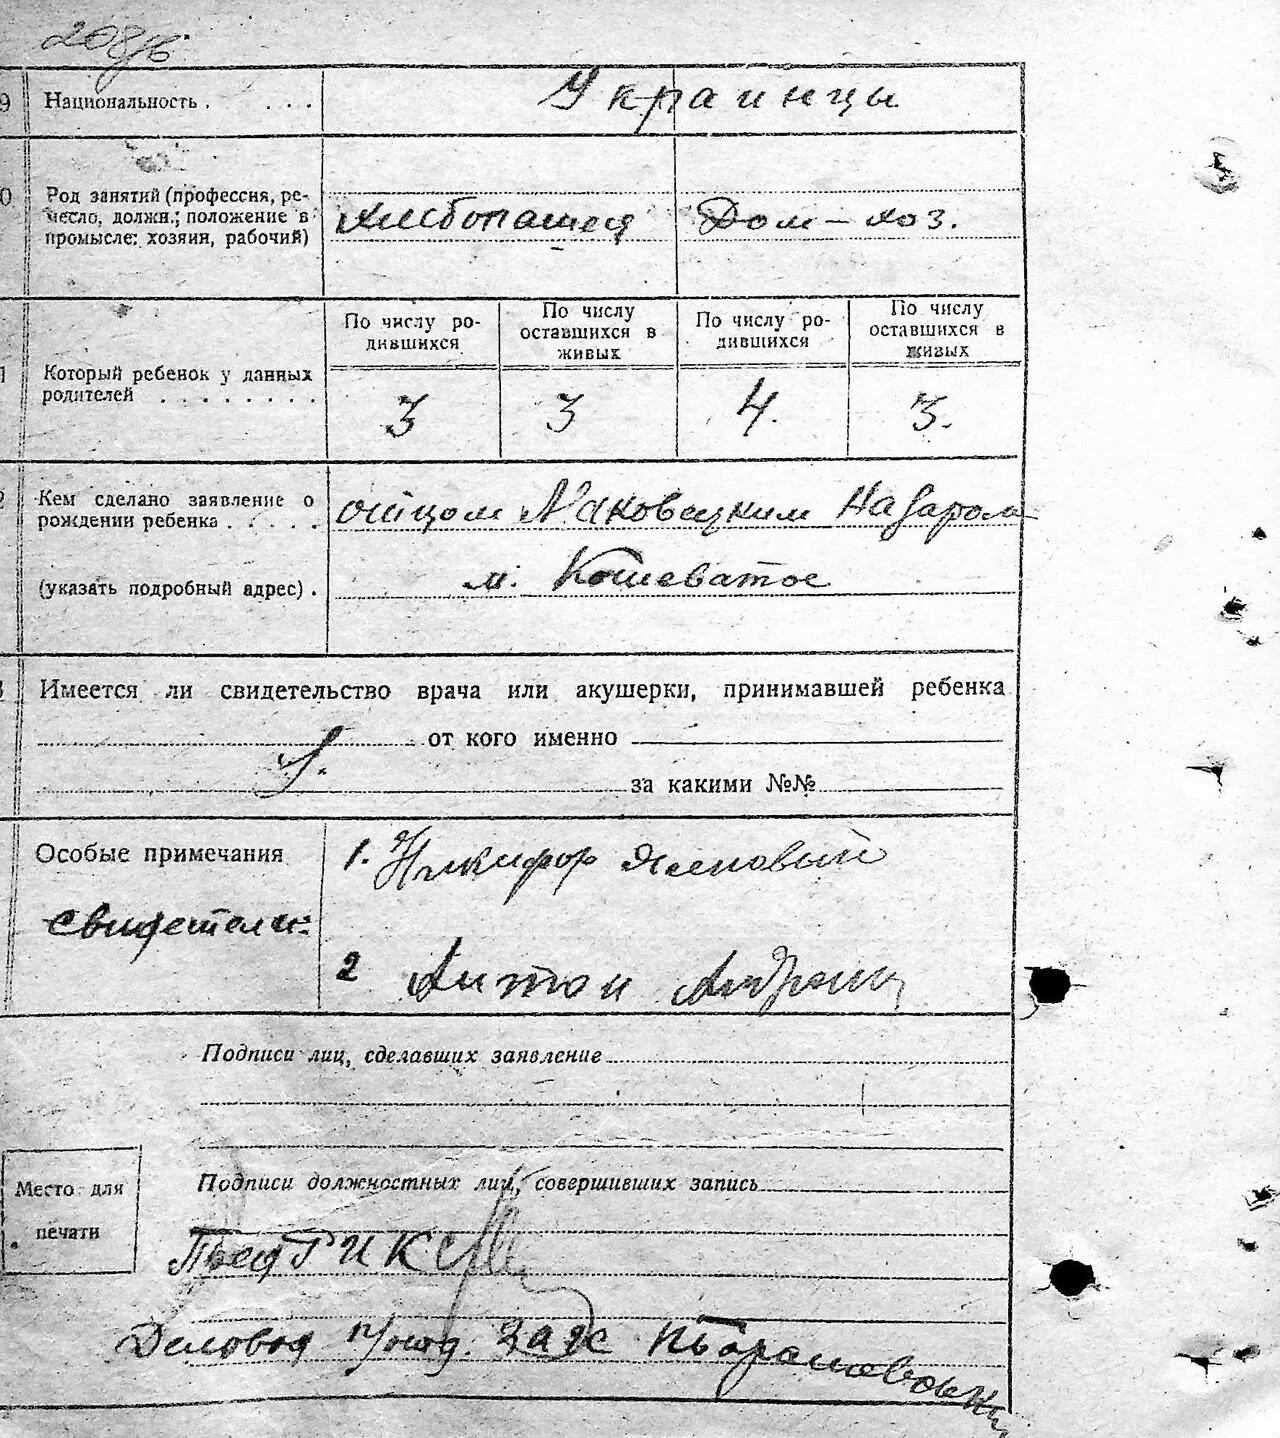 208/б
9 Национальность . . . . Украинцы
0 Род занятий (профессия, ре-
месло, должн.; положение в
промысле: хозяин, рабочий)
Хлебопашец Дом-хоз.
По числу ро-
дившихся
По числу
оставшихся в
живых
По числу ро-
дившихся
По числу
оставшихся в
живых
1 Который ребенок у данных
родителей . . . . . . . .
3 3 4. 3.
2 Кем сделано заявление о
рождении ребенка . . . . .
отцом Маковецким Назаром
(указать подробный адрес) . м. Кошеватое
Имеется ли свидетельство врача или акушерки, принимавшей ребенка
от кого именно
за какими №№
Особые примечания
свидетели:
1. Никифор
2 Антон
Подписи лиц, сделавших заявление
Место для
печати
Подписи должностных лиц, совершивших запись
РИК
Деловод п/отд. Загс